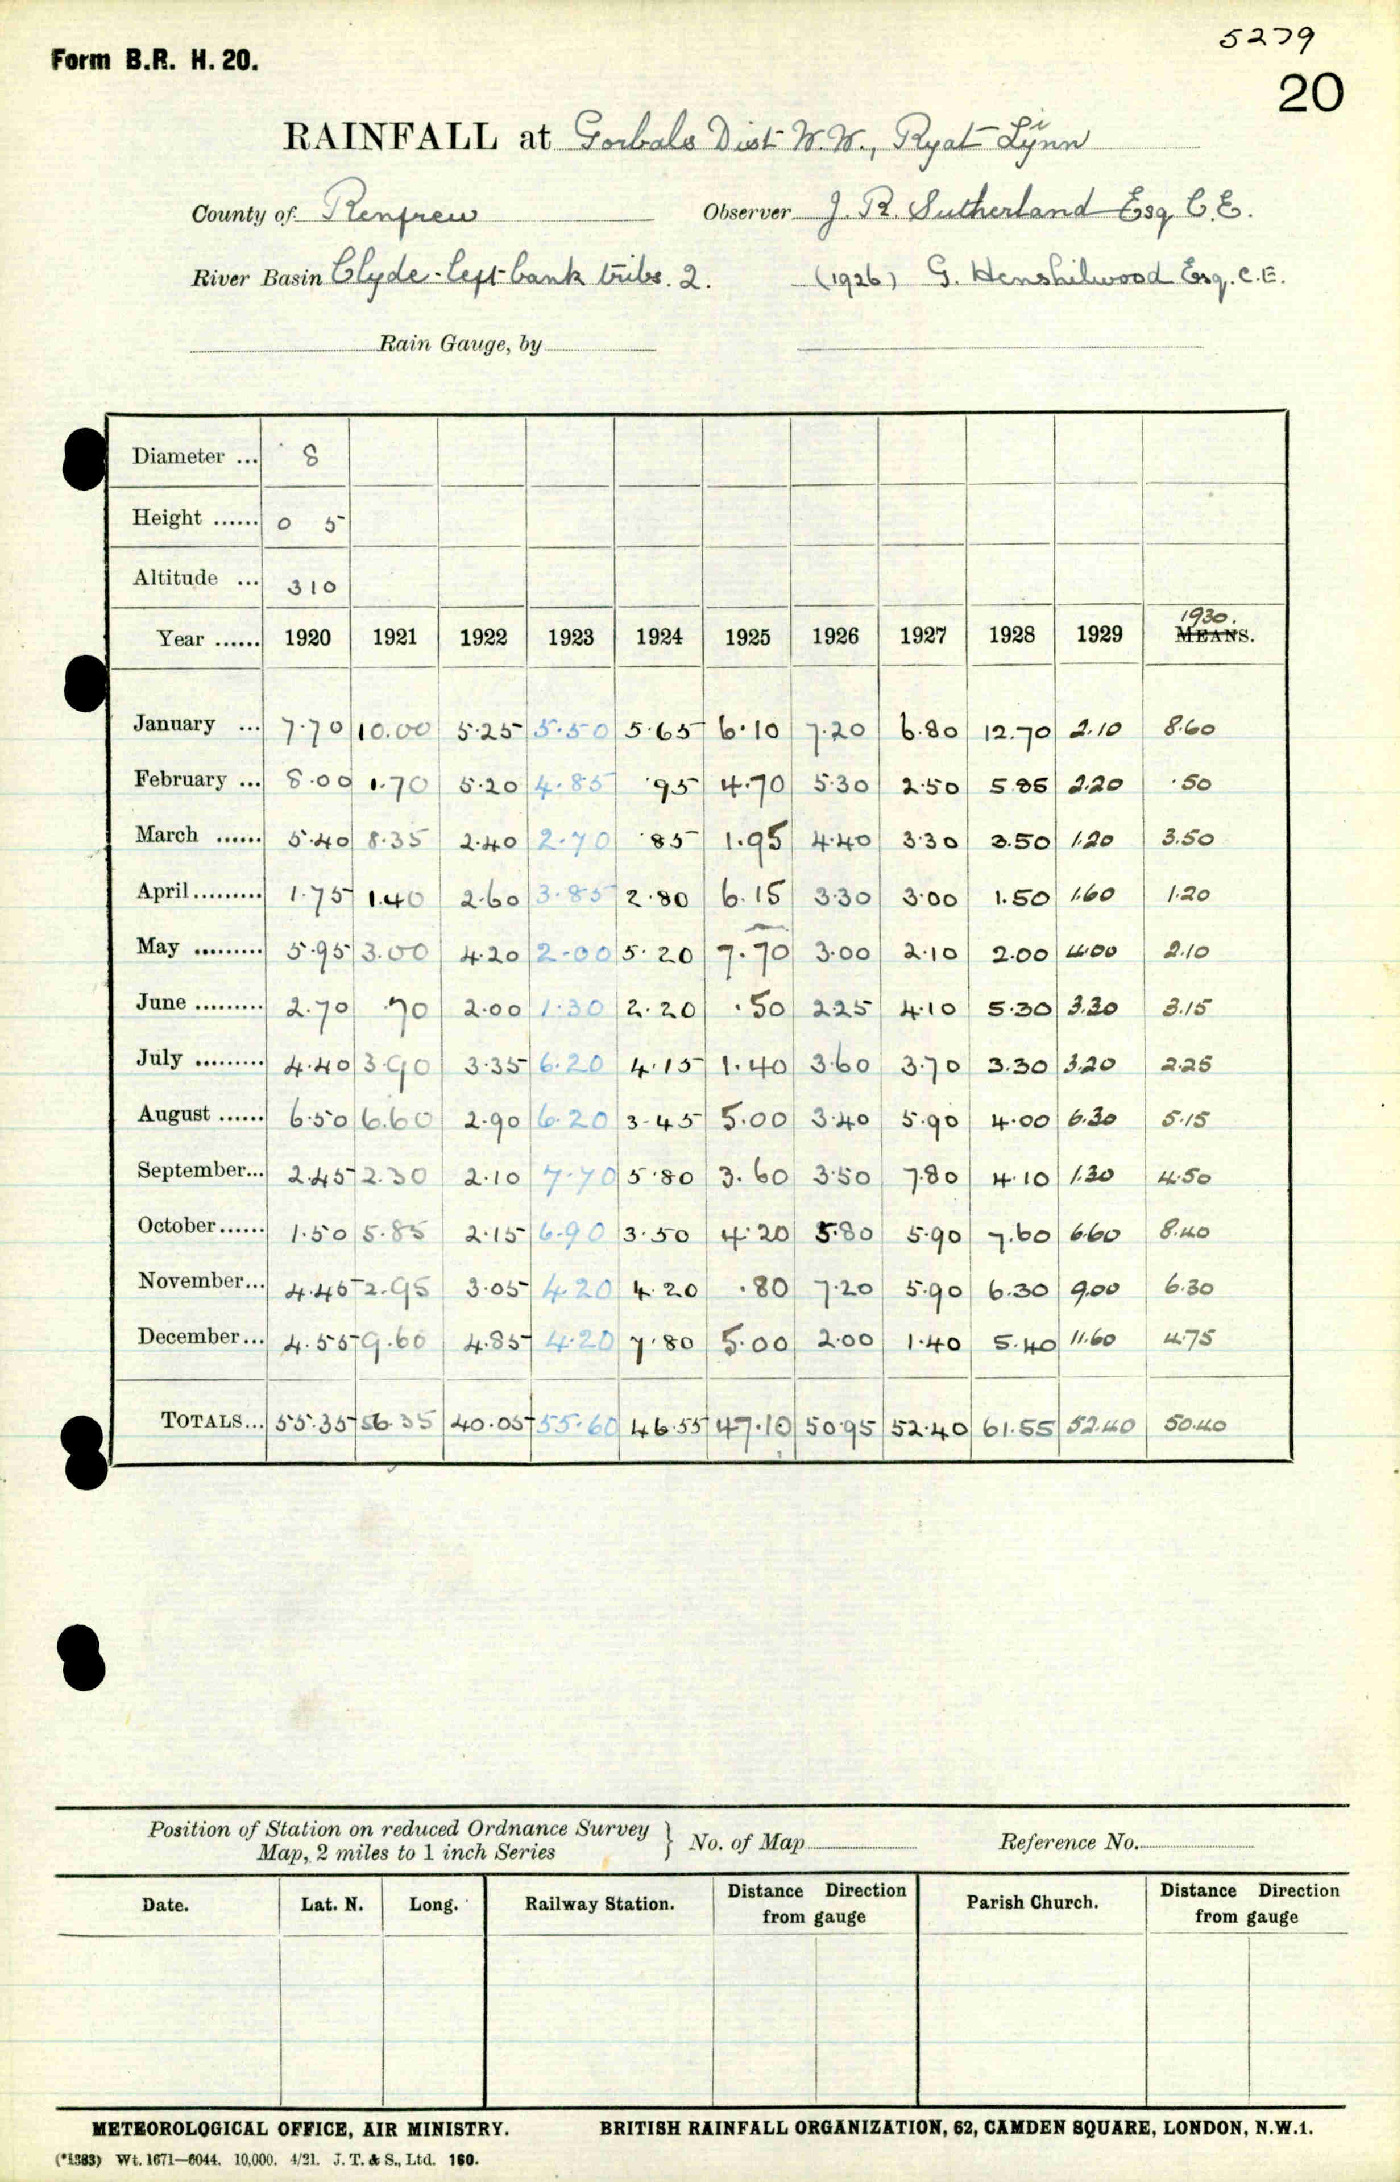 5279
Form B.R. H. 20.
20
RAINFALL at Gorbals Dist W.W., Ryat Lynn
County of Renfrew Observer J. R. Sutherland Esq C.E.
River Basin Clyde-left bank tribs. 2. (1926) G. Henshilwood Esq. C.E.
Rain Gauge, by
Diameter ... 8
Height ...... 0 5
Altitude ... 310
1930.
Year ...... 1920 1921 1922 1923 1924 1925 1926 1927 1928 1929 MEANS.
January ... 7.70 10.00 5.25 5.50 5.65 6.10 7.20 6.80 12.70 2.10 8.60
February ... 8.00 1.70 5.20 4.85 .95 4.70 5.30 2.50 5.85 2.20 .50
March ...... 5.40 8.35 2.40 2.70 .85 1.95 4.40 3.30 3.50 1.20 3.50
April......... 1.75 1.40 2.60 3.85 2.80 6.15 3.30 3.00 1.50 1.60 1.20
May ......... 5.95 3.00 4.20 2.00 5.20 7.70 3.00 2.10 2.00 4.00 2.10
June ......... 2.70 .70 2.00 1.30 2.20 .50 2.25 4.10 5.30 3.30 3.15
July ......... 4.40 3.90 3.35 6.20 4.15 1.40 3.60 3.70 3.30 3.20 2.25
August ...... 6.50 6.60 2.90 6.20 3.45 5.00 3.40 5.90 4.00 6.30 5.15
September... 2.45 2.30 2.10 7.70 5.80 3.60 3.50 7.80 4.10 1.30 4.50
October...... 1.50 5.85 2.15 6.90 3.50 4.20 5.80 5.90 7.60 6.60 8.40
November... 4.45 2.95 3.05 4.20 4.20 .80 7.20 5.90 6.30 9.00 6.30
December... 4.55 9.60 4.85 4.20 7.80 5.00 2.00 1.40 5.40 11.60 4.75
TOTALS... 55.35 56.35 40.05 55.60 46.55 47.10 50.95 52.40 61.55 52.40 50.40
Position of Station on reduced Ordnance Survey
Map, 2 miles to 1 inch Series } No. of Map Reference No.
Date. Lat. N. Long. Railway Station. Distance from gauge Direction Parish Church. Distance from gauge Direction
METEOROLOGICAL OFFICE, AIR MINISTRY. BRITISH RAINFALL ORGANIZATION, 62, CAMDEN SQUARE, LONDON, N.W.1.
(*1383) Wt. 1671—6044. 10,000. 4/21. J. T. & S., Ltd. 160.